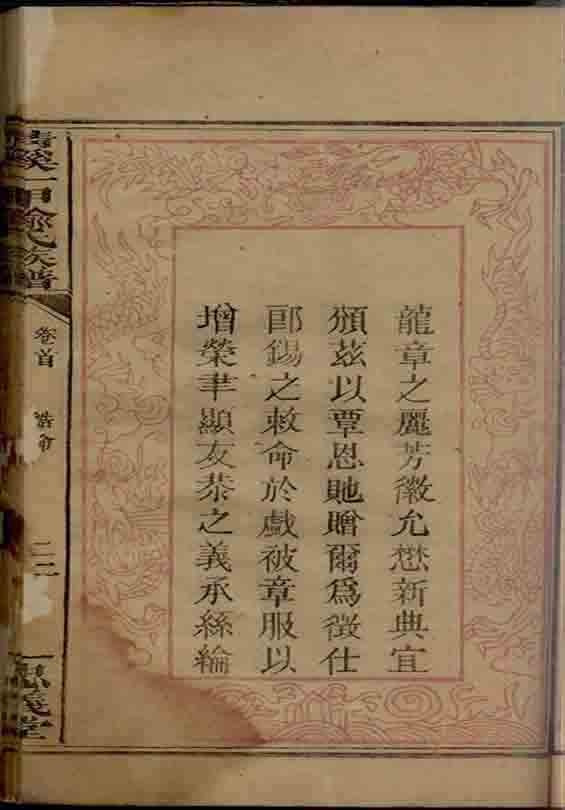 龍章之麗芳徽允懋新典宜
頒茲以覃恩貤贈爾為徵仕
郎錫之敕命於戲被章服以
增榮聿顯友恭之義承絲綸
一甲 氏族譜
卷首
誥命
二二
義堂